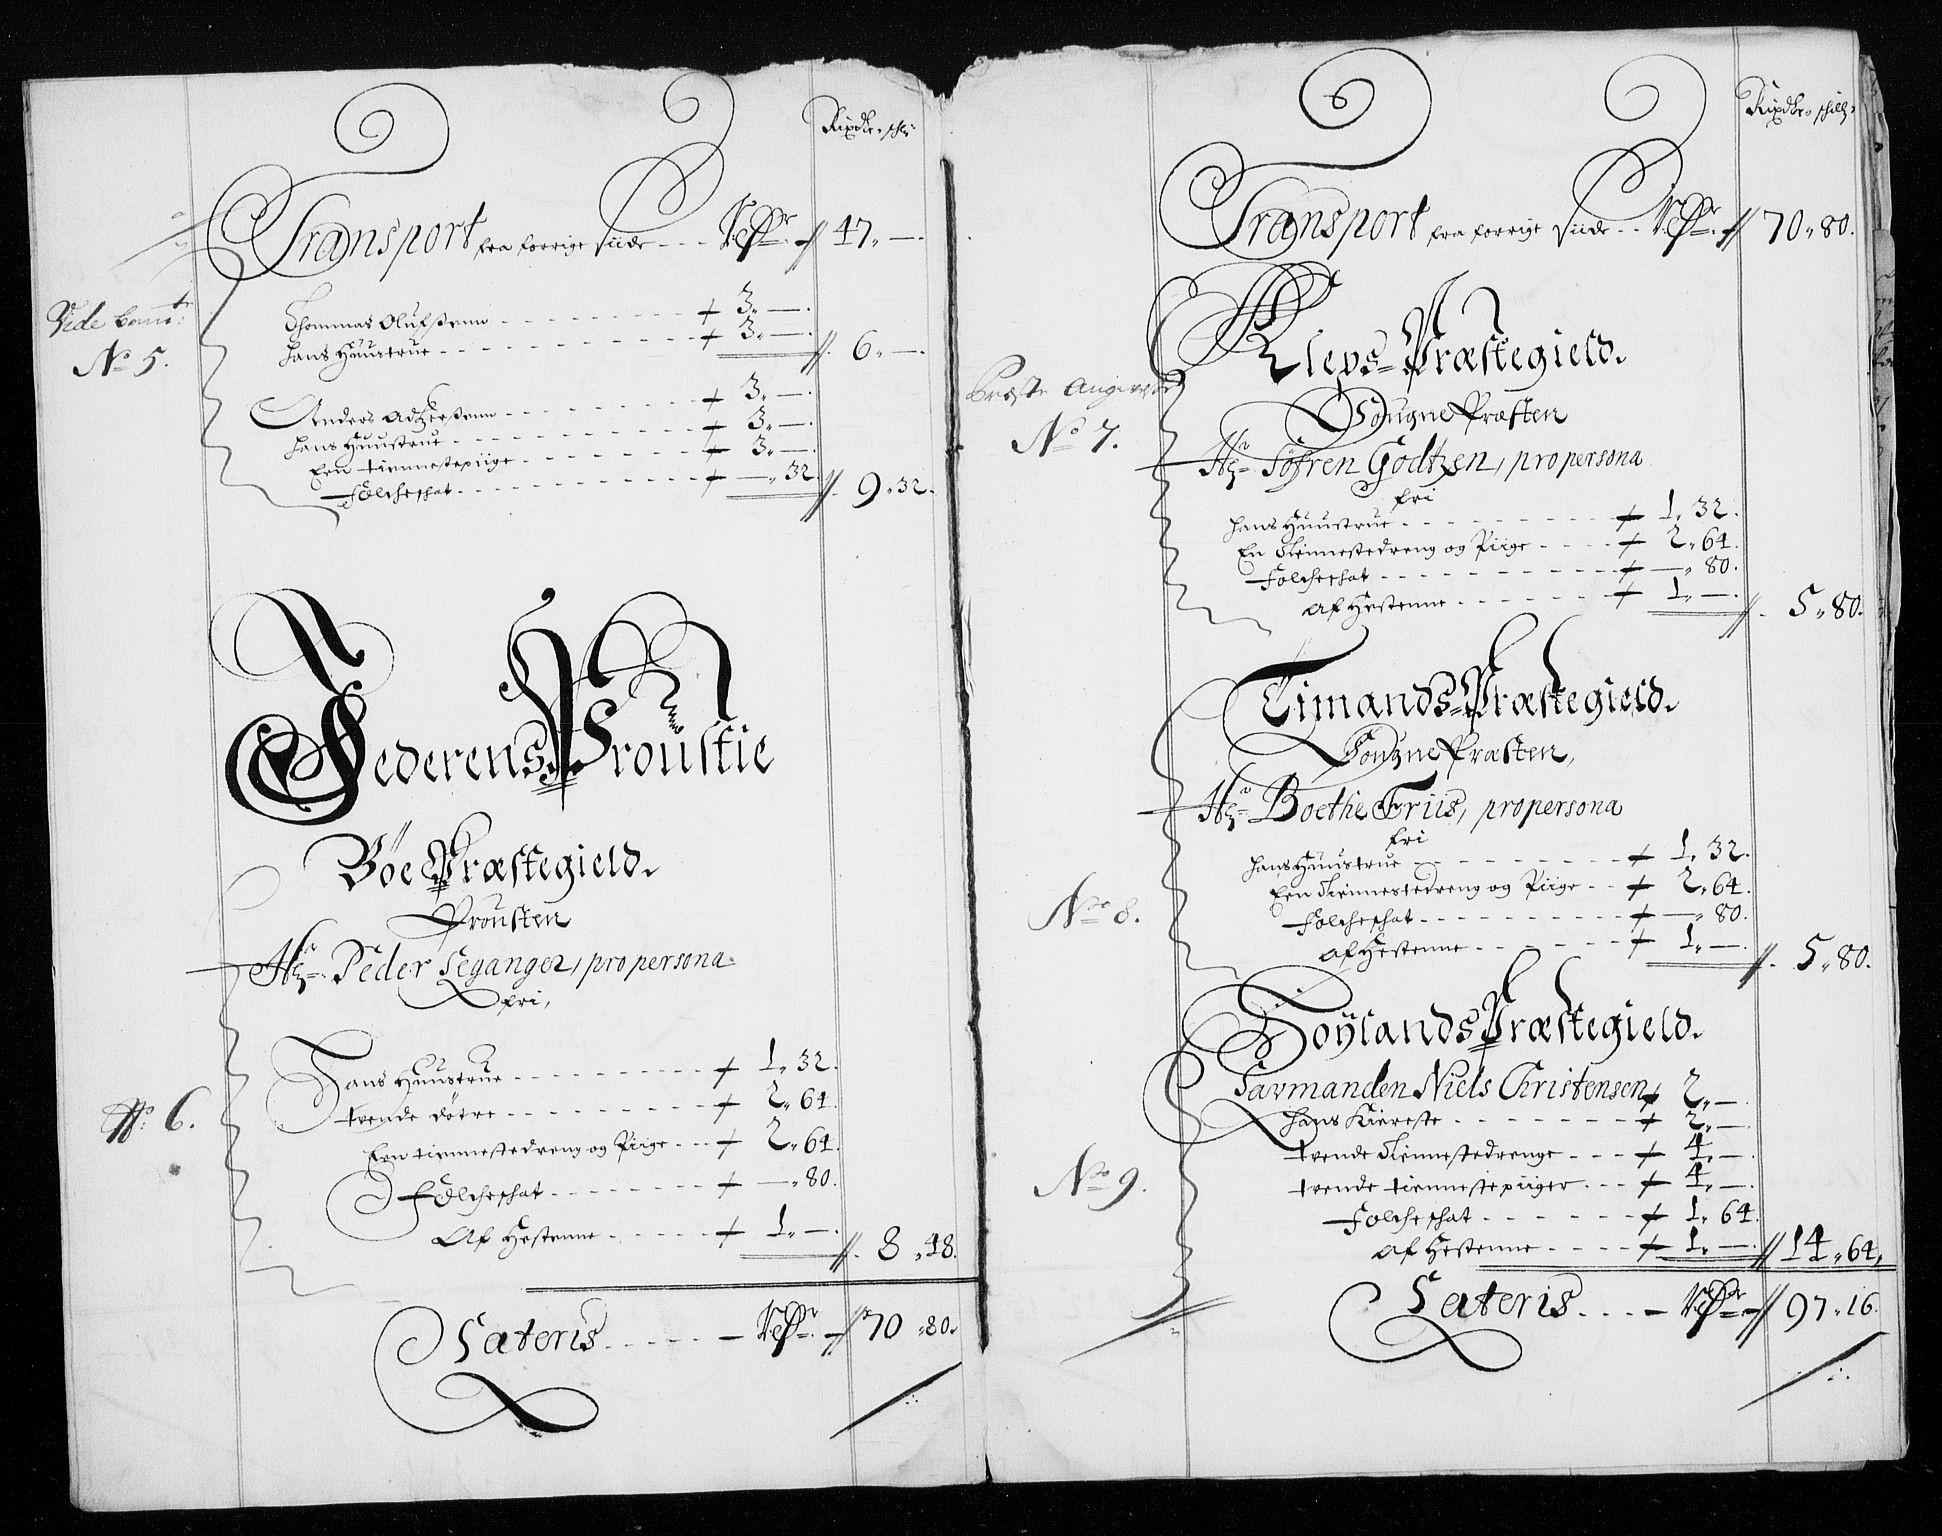 Rixdlr. sch:
Transport fra forrige Siide - - - 47,, —.
Vide bem.t:
No 5.
Thommas Olufssenn - - - 3,, —.
hans Huustrue - - - 3,, —. 6,, —.
Anders - - - 3,, —.
hans Huustrue - - - 3,, —.
Een tiennestepiige - - - 3,, —.
Folcheschat - - - —,, 32. 9,, 32.
Jederens Proustie
Bøe Præstegield.
Prousten
Hr. Peder Seganger, pro persona.
fri,
No. 6.
Hans Huustrue - - - 1,, 32.
tvende døtre - - - 2,, 64.
Een tiennestedreng og Piige - - - 2,, 64.
Folcheschat - - - —,, 80.
Af Hestenne - - - 1,, —. 8,, 48.
Lateris - - - 70,, 80.
Rixdlr. schill.
Transport fra forrige Siide - - 70,, 80.
Kleps-Præstegield.
Præste Angivelse
No 7.
Sougne Præsten
Hr. Søfren Godtzen, pro persona
fri
hans Huustrue - - - 1,, 32.
En Tiennestedreng og Piige - - - 2,, 64.
Folcheschat - - - —,, 80.
af Hestenne - - - 1,, —. 5,, 80.
Timands-Præstegield.
Sougne Præsten,
Hr. Boethe Friis, pro persona
fri
No 8.
hans Huustrue - - - 1,, 32.
Een Tiennestedreng og Piige - - 2,, 64.
Folcheschat - - - —,, 80.
af Hestenne - - - 1,, —. 5,, 80.
Høylands Præstegield.
Laxmanden Niels Christensen 2,, —.
hans Kiereste - - - 2,, —.
No 9.
tvende Tiennestedrenge - - - 4,, —.
tvende tiennestepiiger - - - 4,, —.
Folcheschat - - - 1,, 64.
af Hestenne - - - 1,, —. 14,, 64.
Lateris - - - 97,, 16.